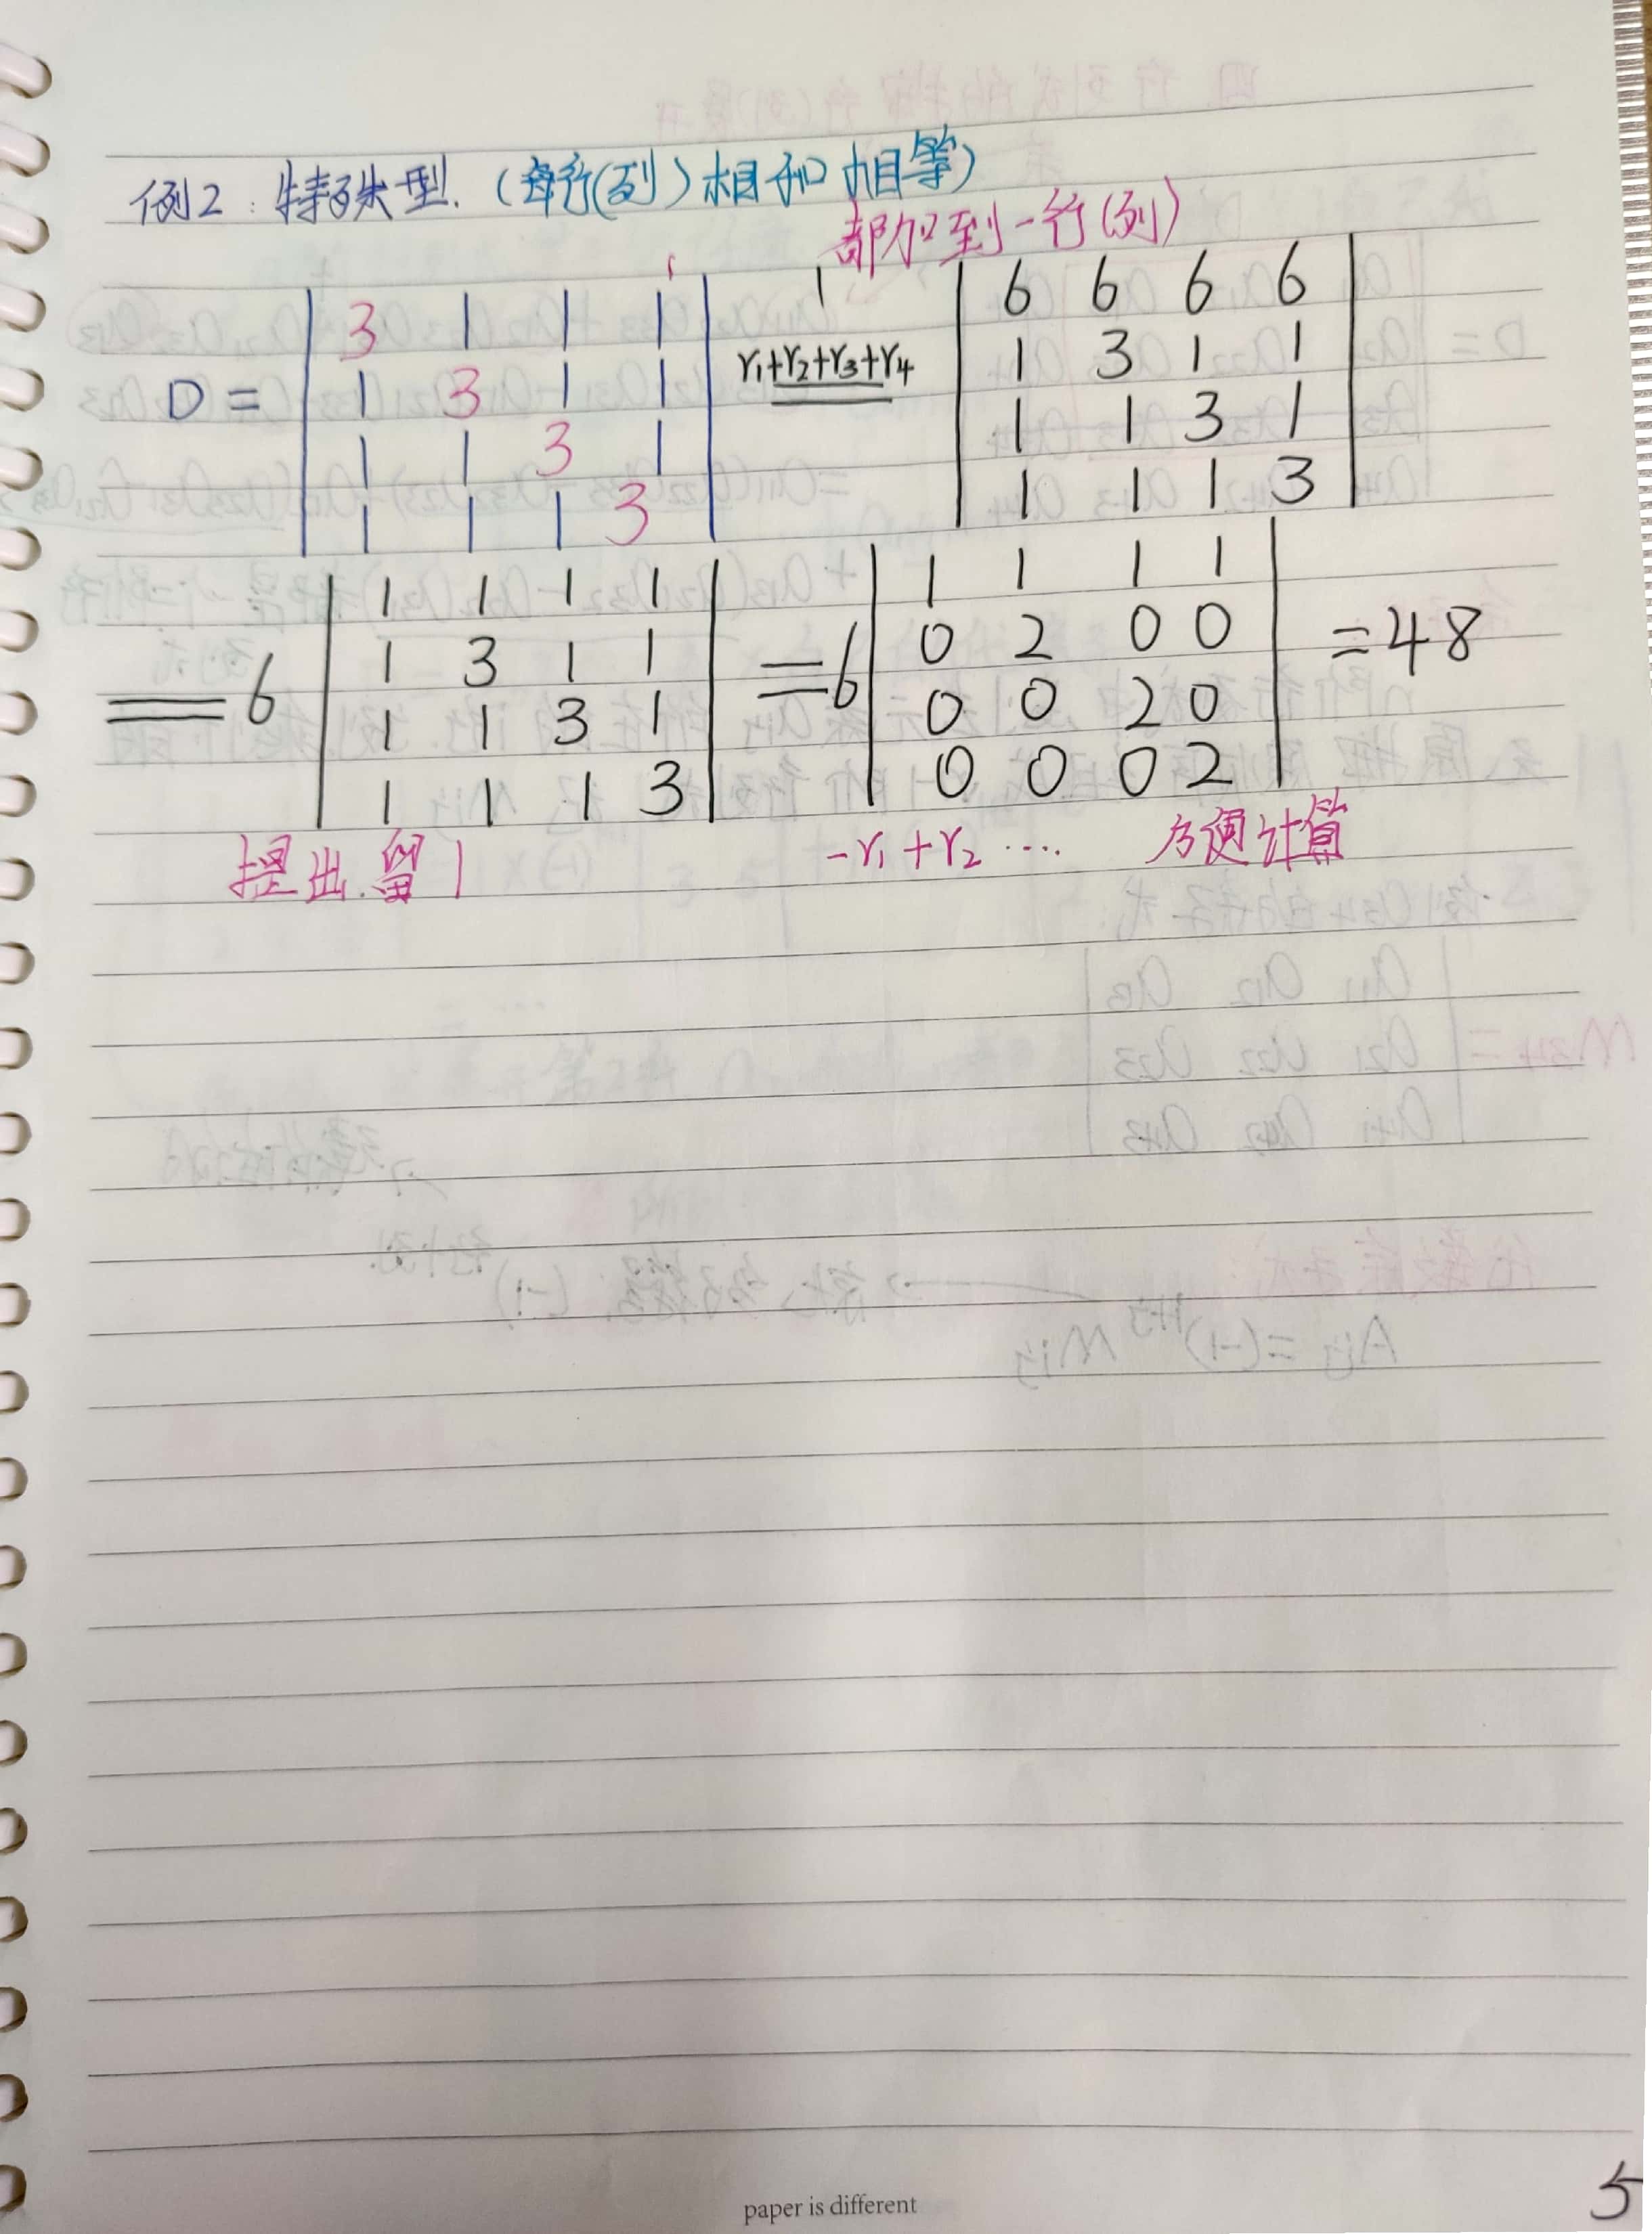 例2：特殊型.（每行(列)相和相等）
都加到一行(列)
D = | 3 1 1 1 | r₁+r₂+r₃+r₄ | 6 6 6 6 |
| 1 3 1 1 | | 1 3 1 1 |
| 1 1 3 1 | | 1 1 3 1 |
| 1 1 1 3 | | 1 1 1 3 |
| 1 1 1 1 | | 1 1 1 1 |
= 6 | 1 3 1 1 | = 6 | 0 2 0 0 | = 48
| 1 1 3 1 | | 0 0 2 0 |
| 1 1 1 3 | | 0 0 0 2 |
提出.留1 -r₁+r₂ ···· 方便计算
paper is different
5